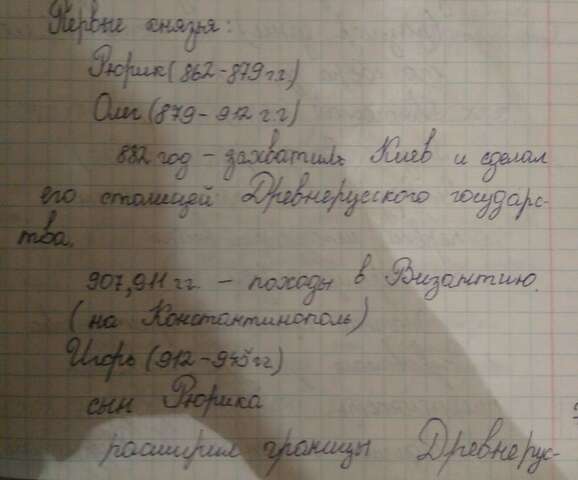 Первые князья:
Рюрик (862-879 г.г.)
Олег (879-912 г.г)
882 год - захватилъ Киев и сделал
его столицей Древнерусского государс-
тва.
907,911 гг. - походы в Византию.
(на Константинополь)
Игорь (912-945 гг)
сын Рюрика
расширил границы Древнерус-